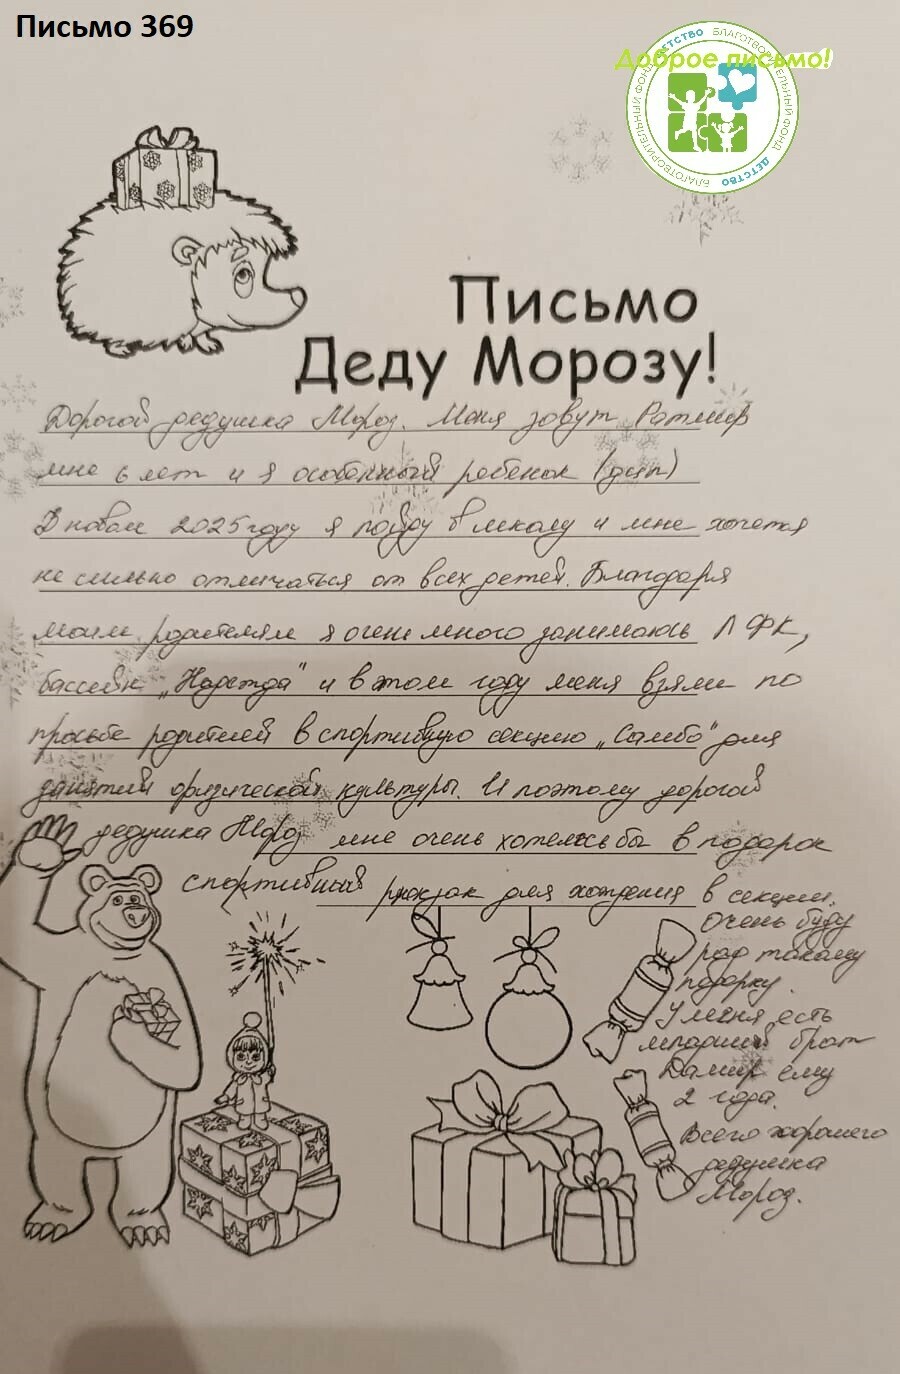 Письмо 369
Доброе письмо!
БЛАГОТВОРИТЕЛЬНЫЙ ФОНД ДЕТСТВО БЛАГОТВОРИТЕЛЬНЫЙ ФОНД ДЕТСТВО
Письмо
Деду Морозу!
Дорогой дедушка Мороз. Меня зовут Ратмир
мне 6 лет и я особенный ребенок (дцп)
В новом 2025 году я пойду в школу и мне хочется
не сильно отличаться от всех детей. Благодаря
моим родителям я очень много занимаюсь ЛФК,
бассейн "Надежда" и в этом году меня взяли по
просьбе родителей в спортивную секцию "Самбо" для
занятий физической культуры. И поэтому дорогой
дедушка Мороз мне очень хотелось бы в подарок
спортивный рюкзак для хождения в секции.
Очень буду
рад такому
подарку.
У меня есть
младший брат
Дамир ему
2 года.
Всего хорошего
дедушка
Мороз.